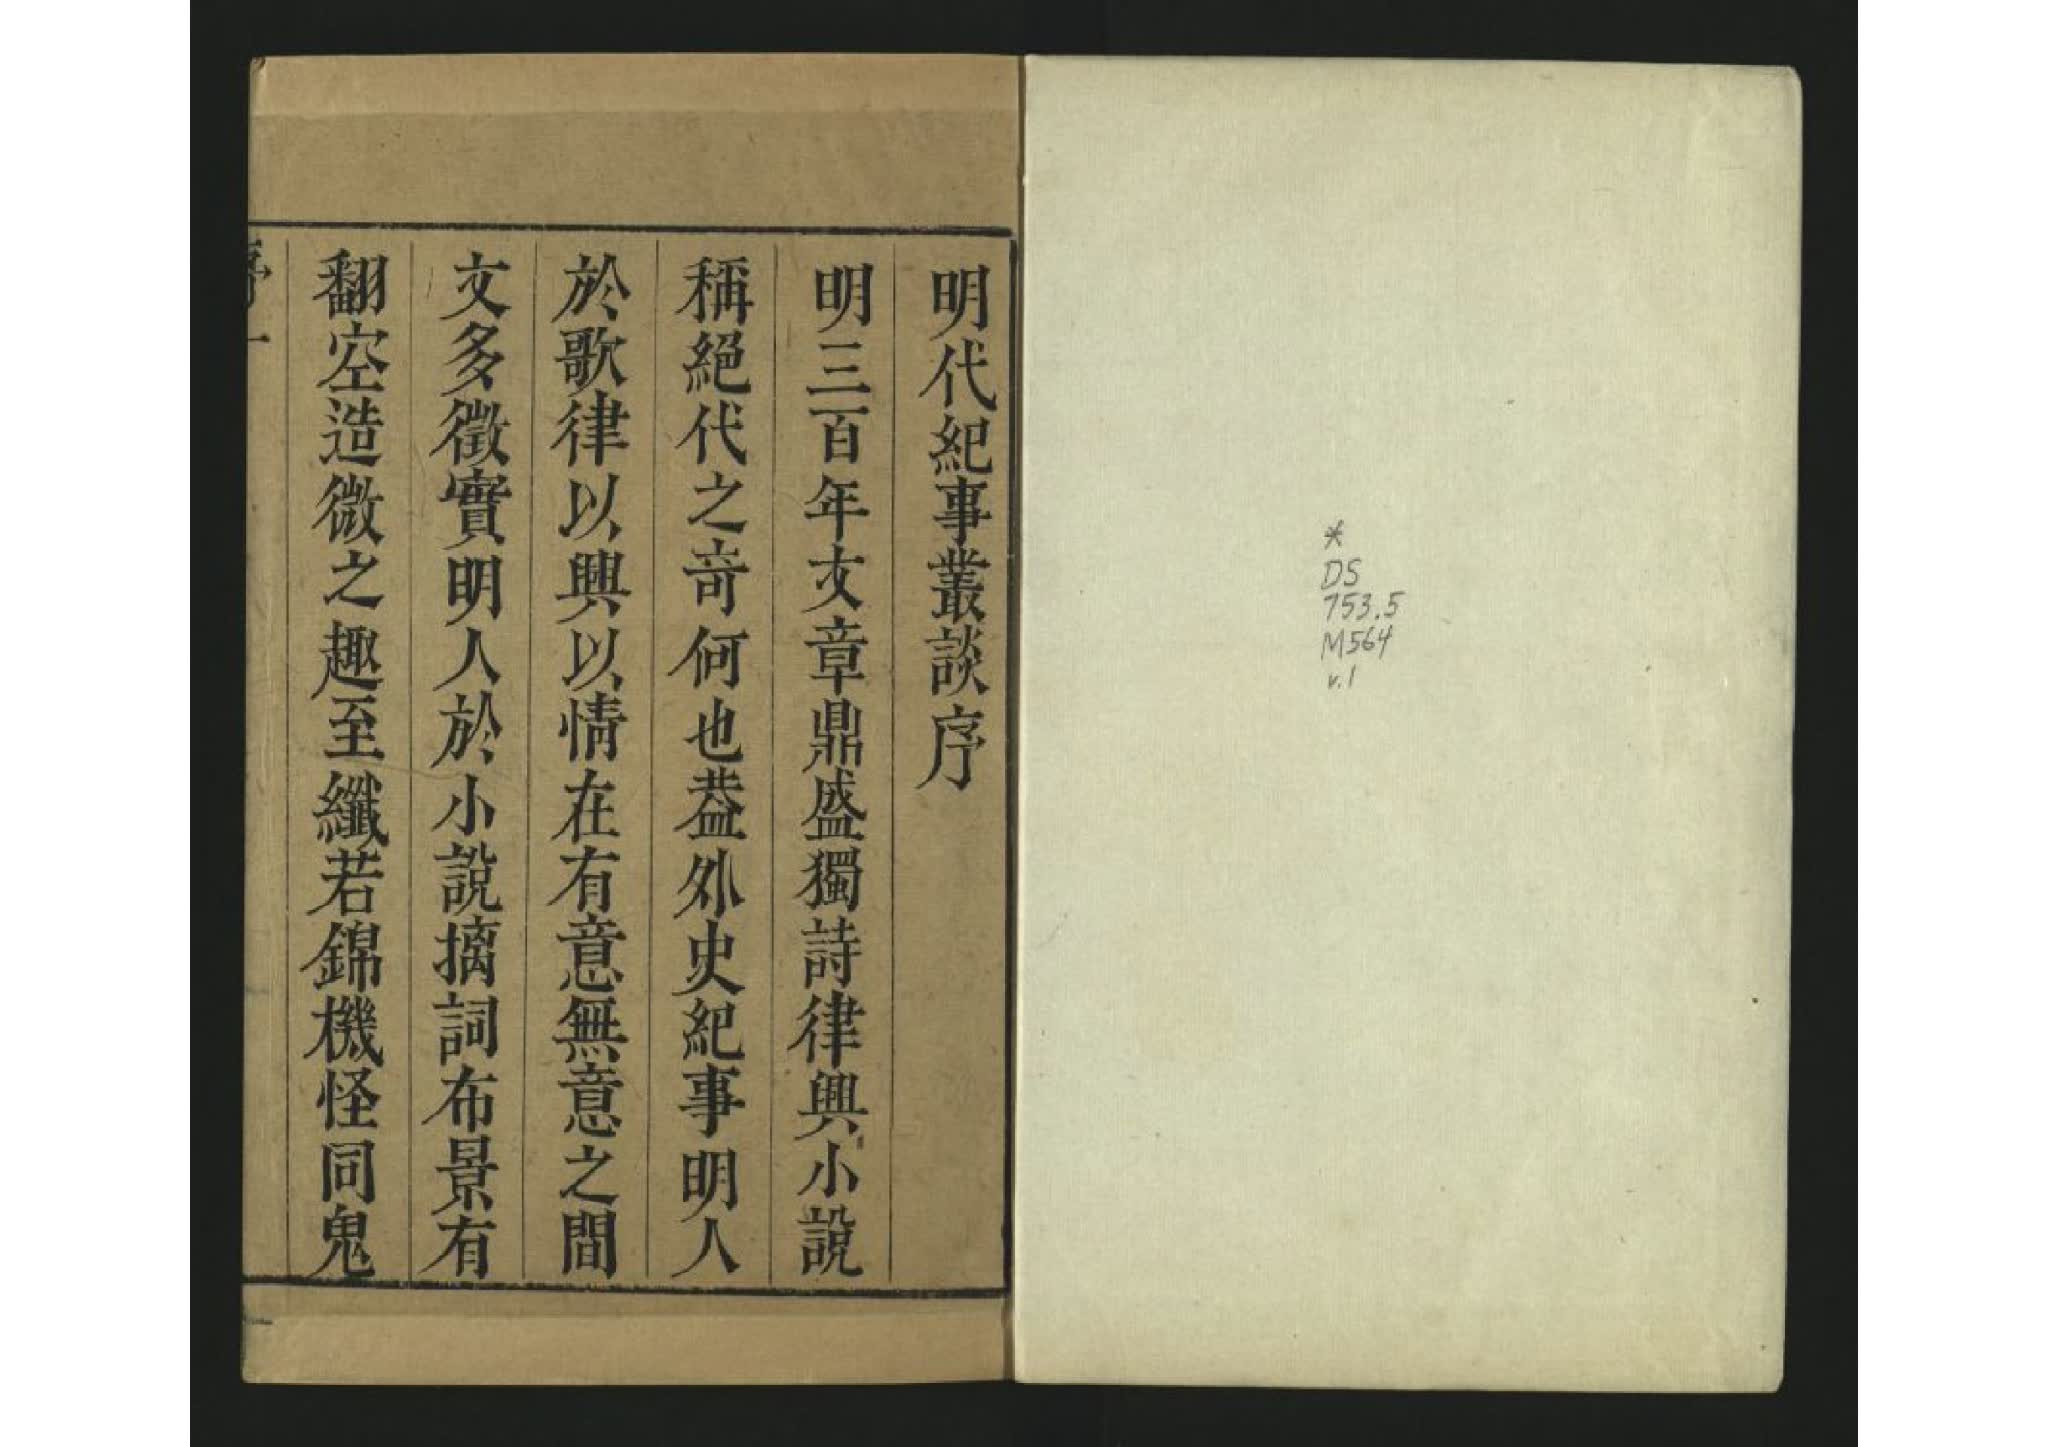 *
DS
753.5
M564
v.1
明代紀事叢談序
明三百年文章鼎盛獨詩律興小說
稱絕代之竒何也葢外史紀事明人
於歌律以興以情在有意無意之間
文多徵實明人於小說摛詞布景有
翻空造微之趣至纖若錦機怪同鬼
序一